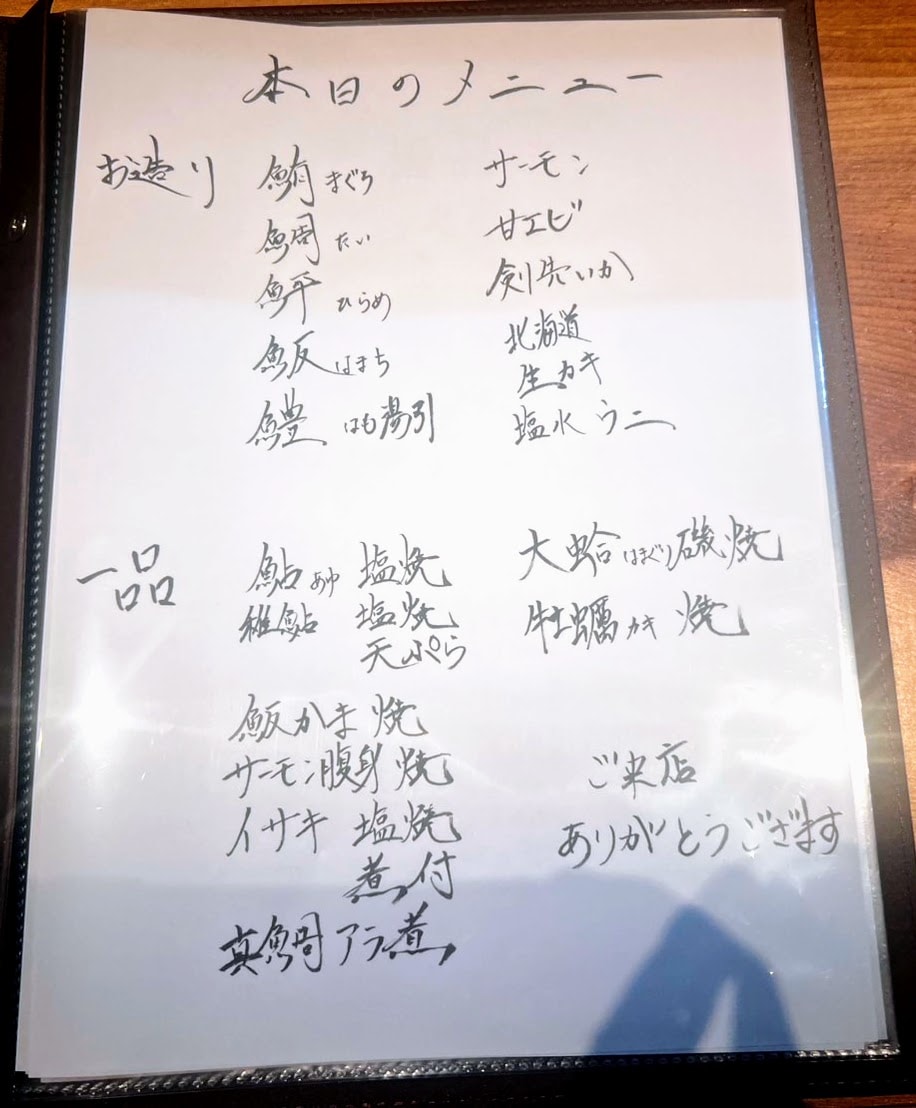 本日のメニュー
お造り
鮪まぐろ
鯛たい
鮃ひらめ
魬はまち
鱧はも湯引
サーモン
甘エビ
剣先いか
北海道
生ガキ
塩水ウニ
一品
鮎あゆ 塩焼
稚鮎 塩焼
天ぷら
魬かま焼
サーモン腹身焼
イサキ 塩焼
煮付
真鯛アラ煮
大蛤はまぐり磯焼
牡蠣カキ焼
ご来店
ありがとうございます